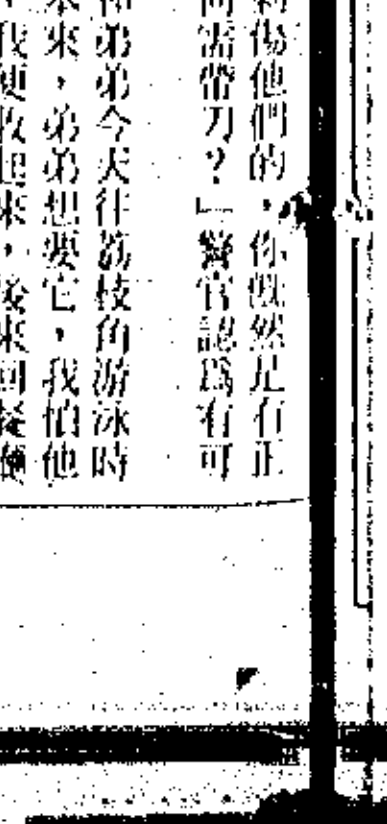 傷他們的，你旣然是有正
需帶刀？」警官認爲有可
弟弟今天往荔枝角游泳時
來，弟弟想要它，我怕他
我便收起來，後來回